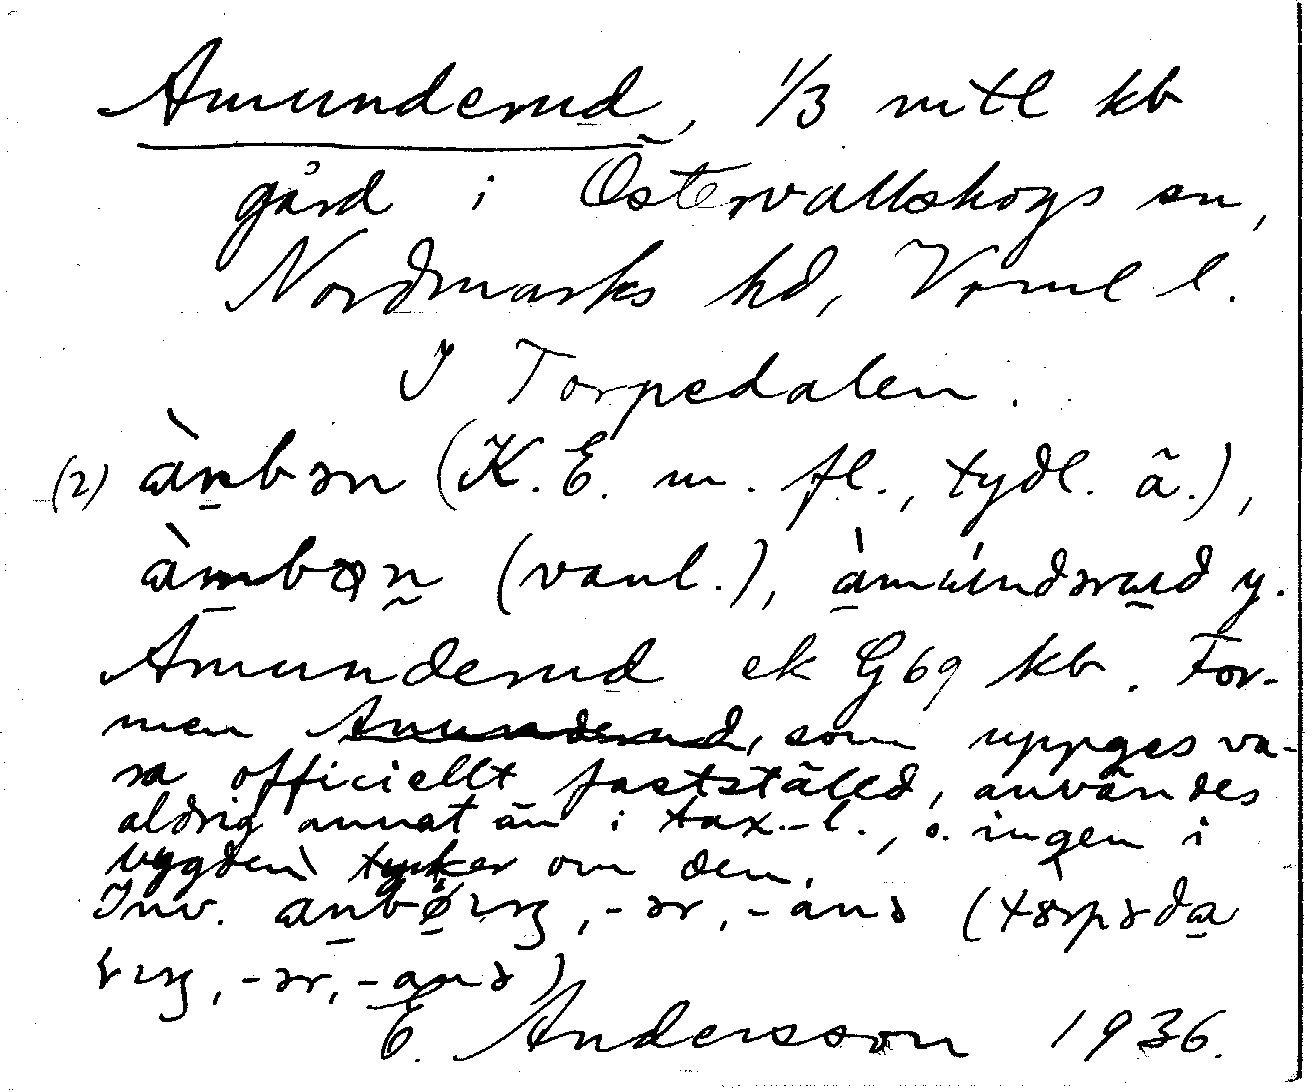 Amunderud, 1/3 mtl kb
gård i Östervallskogs sn,
Nordmarks hd, Värml l.
I Torpedalen.
(2) ànbən (K. E. m. fl., tydl. ã.),
àmbən (vanl.), àmúndərud y.
Amunderud ek G69 kb. For-
men Anunderud, som uppges va-
ra officiellt fastställd, användes
aldrig annat än i tax.-l., o. ingen i
bygden tycker om den.
Inv. -ər, -anə
-ər, -anə)
E. Andersson 1936.